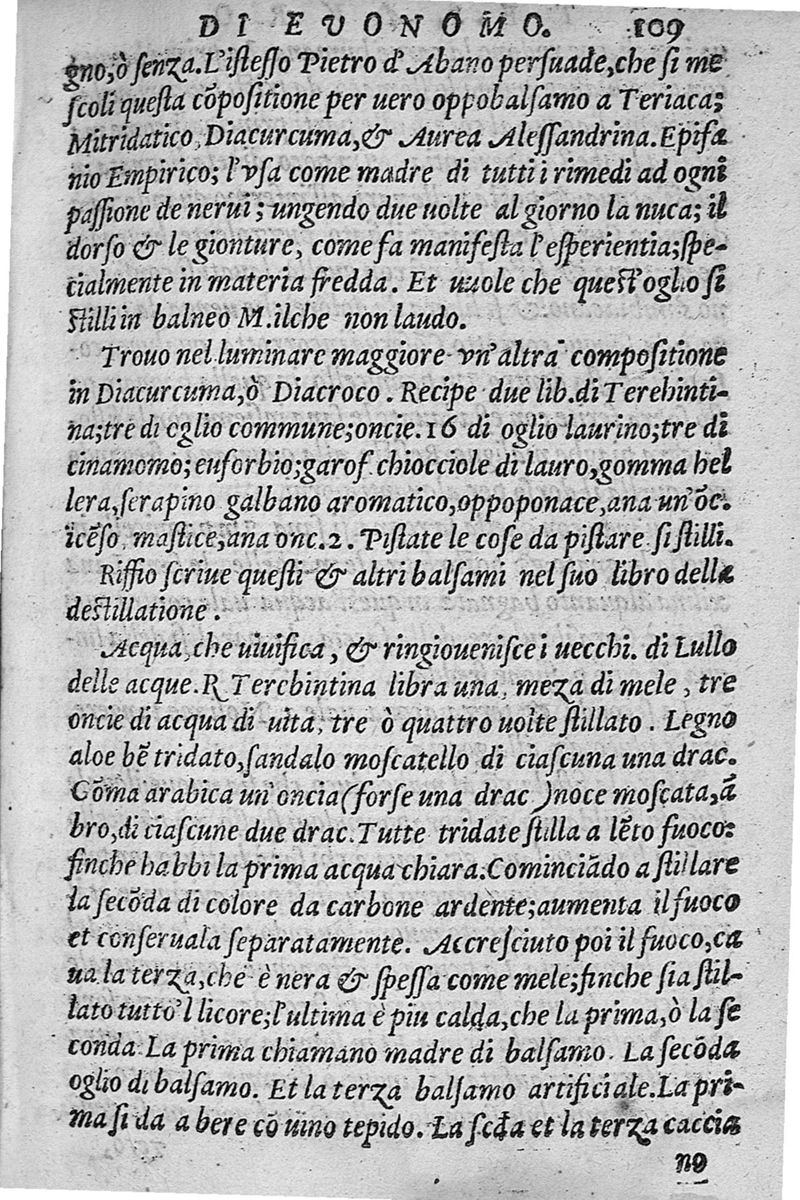 DI EVONOMO. 109
gno, ò senza. L'istesso Pietro d'Abano persuade, che si me
scoli questa cõpositione per uero oppobalsamo a Teriaca;
Mitridatico, Diacurcuma, & Aurea Alessandrina. Epifa
nio Empirico; l'vsa come madre di tutti i rimedi ad ogni
passione de nerui; ungendo due uolte al giorno la nuca; il
dorso & le gionture, come fa manifesta l'esperientia; spe-
cialmente in materia fredda. Et uuole che quest'oglio si
stilli in balneo M. ilche non laudo.
Trouo nel luminare maggiore vn'altra compositione
in Diacurcuma, ò Diacroco. Recipe due lib. di Terebinti-
na; tre di oglio commune; oncie. 16 di oglio laurino; tre di
cinamomo; euforbio; garof. chiocciole di lauro, gomma hel
lera, serapino galbano aromatico, oppoponace, ana un'õc.
icẽso, mastice, ana onc. 2. Pistate le cose da pistare si stilli.
Riffio scriue questi & altri balsami nel suo libro della
destillatione.
Acqua, che uiuifica, & ringiouenisce i uecchi. di Lullo
delle acque. ℞ Terebintina libra una, meza di mele, tre
oncie di acqua di uita, tre ò quattro uolte stillato. Legno
aloe bẽ tridato, sandalo moscatello di ciascuna una drac.
Gõma arabica un'oncia (forse una drac) noce moscata, ã
bro, di ciascune due drac. Tutte tridate stilla a lẽto fuoco:
finche habbi la prima acqua chiara. Cominciãdo a stillare
la secõda di colore da carbone ardente; aumenta il fuoco
et conseruala separatamente. Accresciuto poi il fuoco, ca
ua la terza, che è nera & spessa come mele; finche sia stil-
lato tutto'l licore; l'ultima è piu calda, che la prima, ò la se
conda. La prima chiamano madre di balsamo. La secõda
oglio di balsamo. Et la terza balsamo artificiale. La pri-
ma si da a bere cõ uino tepido. La scđa et la terza caccia
no